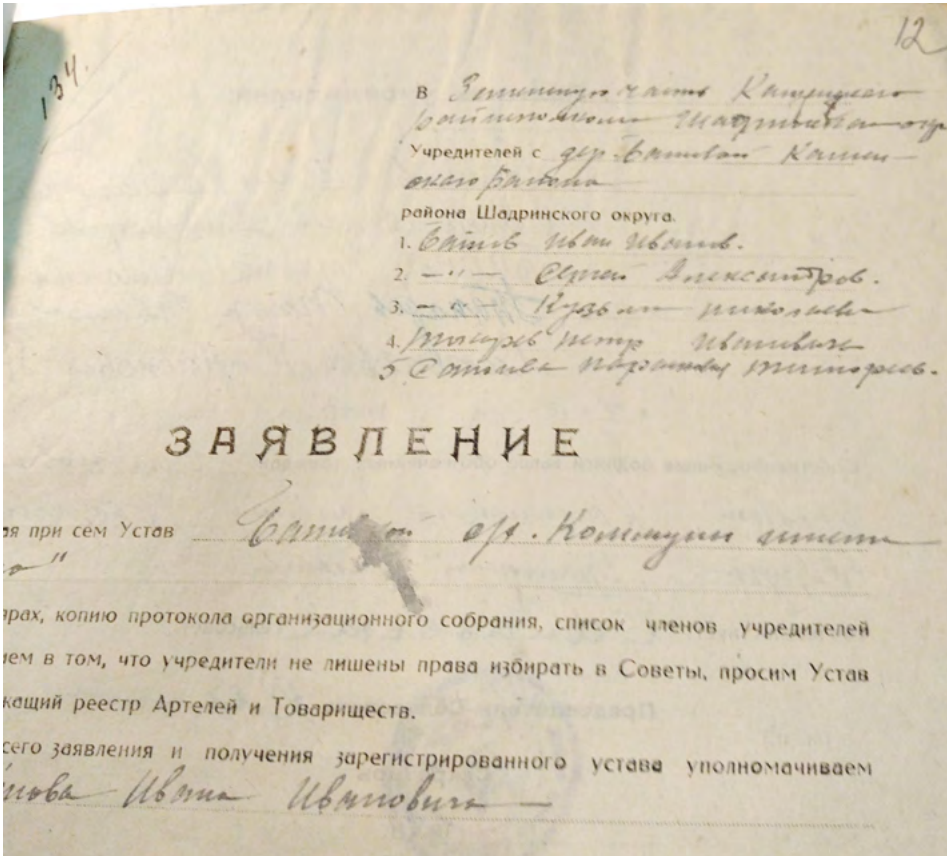 12
134.
В Земельную часть Катайского
Райисполкома Шадринского окр
Учредителей с дер. Баитовой Катай-
ского Района
района Шадринского округа.
1. Баитов Иван Иванов.
2. —"— Сергей Александров.
3. —"— Кузьма Николаев
4. Петр Иванович
5
ЗАЯВЛЕНИЕ
ая при сем Устав с/х. Коммуны имени
"
ярах, копию протокола организационного собрания, список членов учредителей
ием в том, что учредители не лишены права избирать в Советы, просим Устав
жащий реестр Артелей и Товариществ.
сего заявления и получения зарегистрированного устава уполномачиваем
Ивана Ивановича